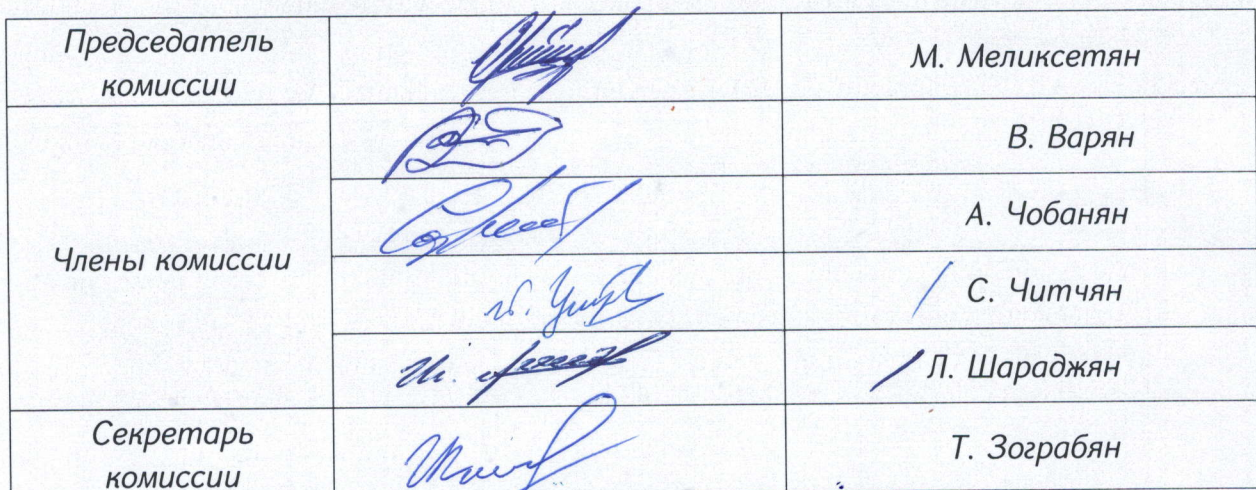 Председатель
комиссии
М. Меликсетян
Члены комиссии
В. Варян
А. Чобанян
/ С. Читчян
/ Л. Шараджян
Секретарь
комиссии
Т. Зограбян